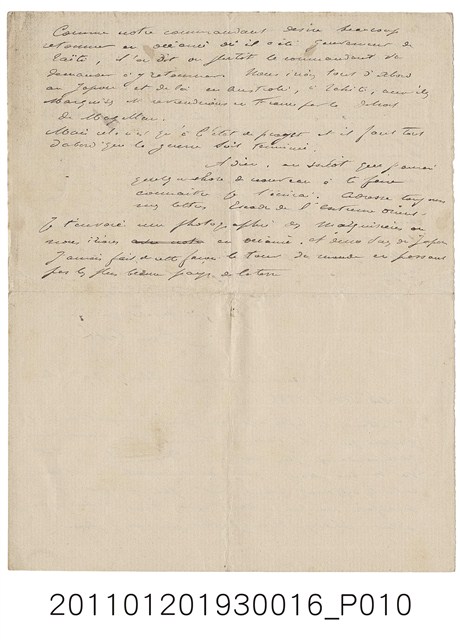 Comme notre commandant désire beaucoup
retourner en océanie où il a été gouverneur de
Taïti, il a dit ou plutôt le commandant de
demander à y retourner. Nous irions tout d'abord
au Japon et de là en australie, à Tahiti, aux îles
Marquises et reviendrions en France par le détroit
de Magellan.
Mais cela n'est qu'à l'état de projet et il faut tout
d'abord que la guerre soit terminée.
Adieu, au salut que j'aurai
quelque chose de nouveau à te faire
connaitre je t'écrirai. Adresse toujours
mes lettres Escadre de l'extrême orient.
Je t'enverrai une photographie des Marquises si
nous irions en océanie, et deux du Japon
J'aurai fait de cette façon le tour du monde en passant
par les plus beaux pays de la terre
201101201930016_P010